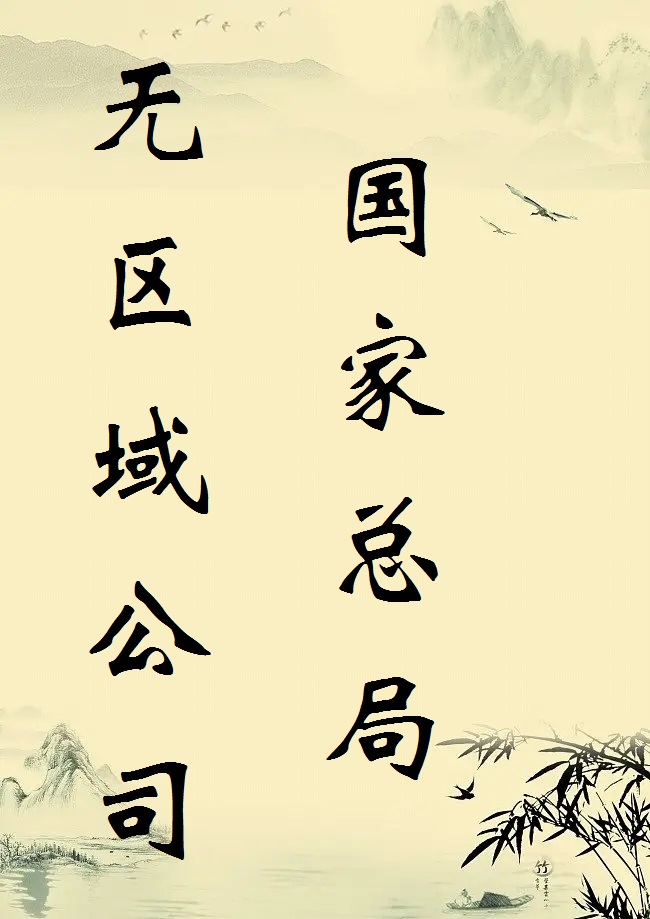 国家总局
无区域公司
竹